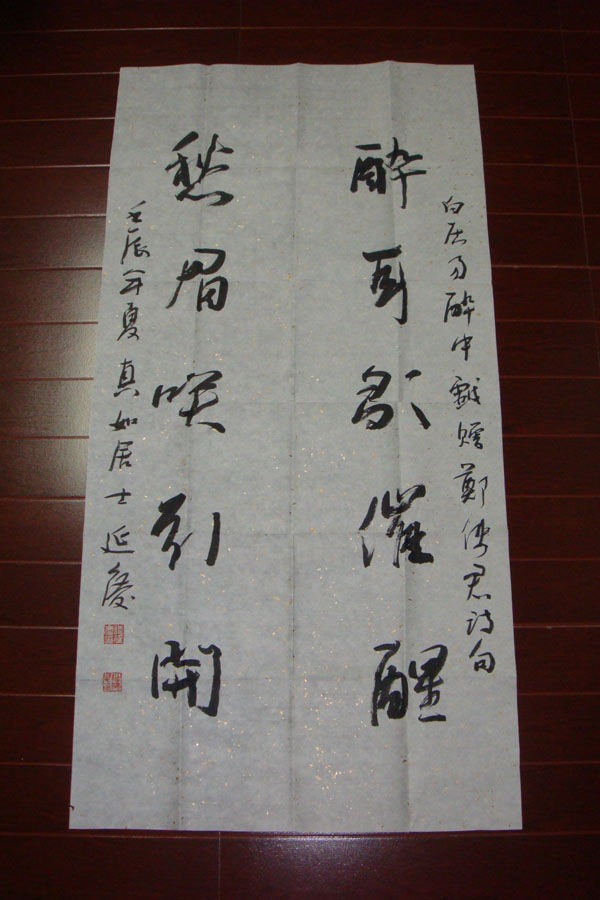 白居易醉中戲贈鄭使君詩句
醉耳歌催醒
愁眉咲引開
壬辰年夏真如居士延慶